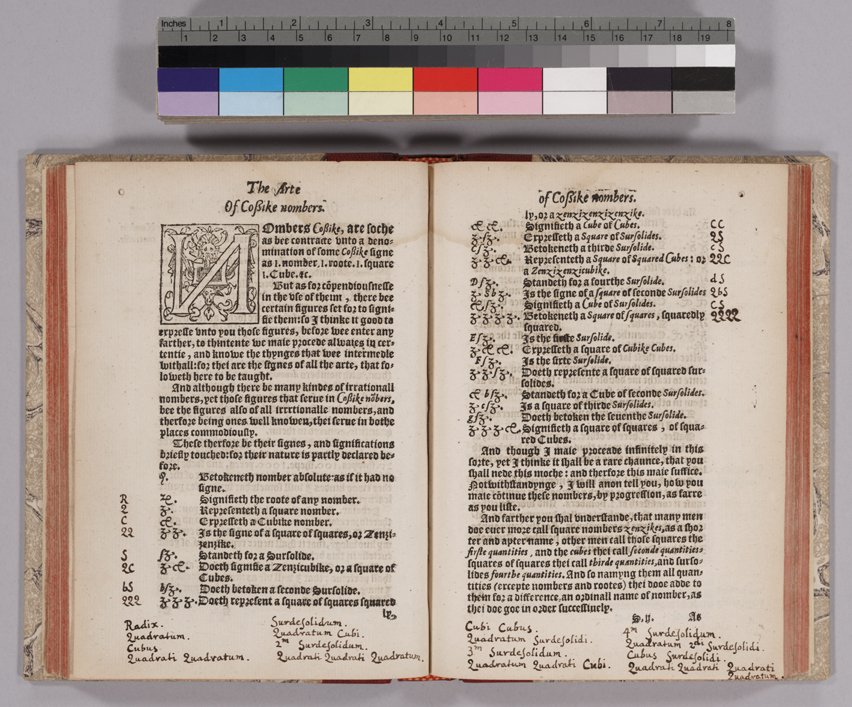 Inches 1 2 3 4 5 6 7 8
1 2 4 5 6 7 9 10 11 12 14 15 16 17 18 19
The Arte
Of Coßike nombers.
NOmbers Coßike, are soche
as bee contracte vnto a deno-
mination of some Coßike signe
as 1. nomber, 1. roote. 1. square
1. Cube. &c.
But as for cõpendiousnesse
in the vse of theim, there bee
certain figures set for to signi-
fie them: so I thinke it good to
expresse vnto you those figures, before wee enter any
farther, to thintente we maie procede alwaies in cer-
tentie, and knowe the thynges that wee intermedle
withall: for thei are the signes of all the arte, that fo-
loweth here to be taught.
And although there be many kindes of irrationall
nombers, yet those figures that serue in Coßike nõbers,
bee the figures also of all irrationalle nombers, and
therfore being ones well knowen, thei serue in bothe
places commodiously.
These therfore be their signes, and significations
briefly touched: for their nature is partly declared be-
fore.
Betokeneth nomber absolute: as if it had no
signe.
R Signifieth the roote of any nomber.
2 ʒ. Representeth a square nomber.
C Expresseth a Cubike nomber.
22 ʒ.ʒ. Is the signe of a square of squares, or Zenzi-
zenzike.
S ſʒ. Standeth for a Sursolide.
2C Doeth signifie a Zenzicubike, or a square of
Cubes.
bS bſʒ. Doeth betoken a seconde Sursolide.
222 ʒ.ʒ.ʒ. Doeth represent a square of squares squared
ly,
Radix. Surdesolidum.
Quadratum. Quadratum Cubi.
Cubus 2m Surdesolidum.
Quadrati Quadratum. Quadrati Quadrati Quadratum.
of Coßike nombers.
ly, or a zenzizenzizenzike.
Signifieth a Cube of Cubes. CC
ʒ.ſʒ. Expresseth a Square of Sursolides. 2S
cſʒ. Betokeneth a thirde Sursolide. cS
Representeth a Square of Squared Cubes: or 22C
a Zenzizenzicubike.
dſʒ. Standeth for a fourthe Sursolide. dS
ʒ.bſʒ. Is the signe of a square of seconde Sursolides 2bS
Signifieth a Cube of Sursolides. CS
ʒ.ʒ.ʒ.ʒ. Betokeneth a Square of squares, squaredly 2222
squared.
Is the Sursolide.
Expresseth a square of Cubike Cubes.
Is the sixte Sursolide.
ʒ.ʒ.ſʒ. Doeth represente a square of squared sur-
solides.
Standeth for a Cube of seconde Sursolides.
ʒ.cſʒ. Is a square of thirde Sursolides.
Doeth betoken the seuenthe Sursolide.
Signifieth a square of squares, of squa-
red Cubes.
And though I maie proceade infinitely in this
sorte, yet I thinke it shall be a rare chaunce, that you
shall nede this moche: and therfore this maie suffice.
Notwithstandynge, I will anon tell you, how you
maie cõtinue these nombers, by progression, as farre
as you liste.
And farther you shal vnderstande, that many men
doe euer more call square nombers zenzikes, as a shor
ter and apter name, other men call those squares the
firste quantities, and the cubes thei call seconde quantities:
squares of squares thei call thirde quantities, and surso-
lides fourthe quantities. And so namyng them all quan
tities (excepte nombers and rootes) thei dooe adde to
them for a difference, an ordinall name of nomber, as
thei doe goe in order successiuely.
S.ij. As
Cubi Cubus. 4m Surdesolidum.
Quadratum Surdesolidi. Quadratum 2di Surdesolidi.
3m Surdesolidum. Cubus Surdesolidi.
Quadratum Quadrati Cubi. Quadrati Quadrati Quadrati
Quadratum.